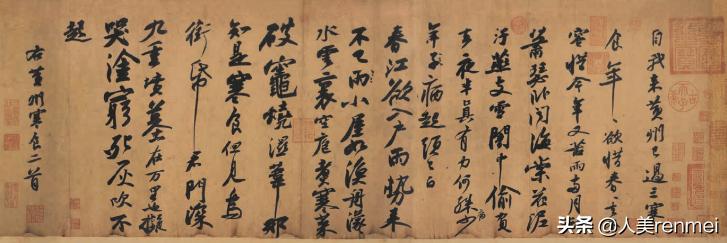 自我来黄州已過三寒
食年〻欲惜春〻去不
容惜今年又苦雨兩月秋
蕭瑟卧聞海棠花泥
汙燕支雪闇中偷負
去夜半真有力何殊病少
年子病起頭已白
春江欲入户雨勢来
不已雨小屋如漁舟濛〻
水雲裏空庖煮寒菜
破竈燒濕葦那
知是寒食但見烏
銜帋君門深
九重墳墓在万里也擬
哭塗窮死灰吹不
起
右黄州寒食二首
头条 @人美renmei